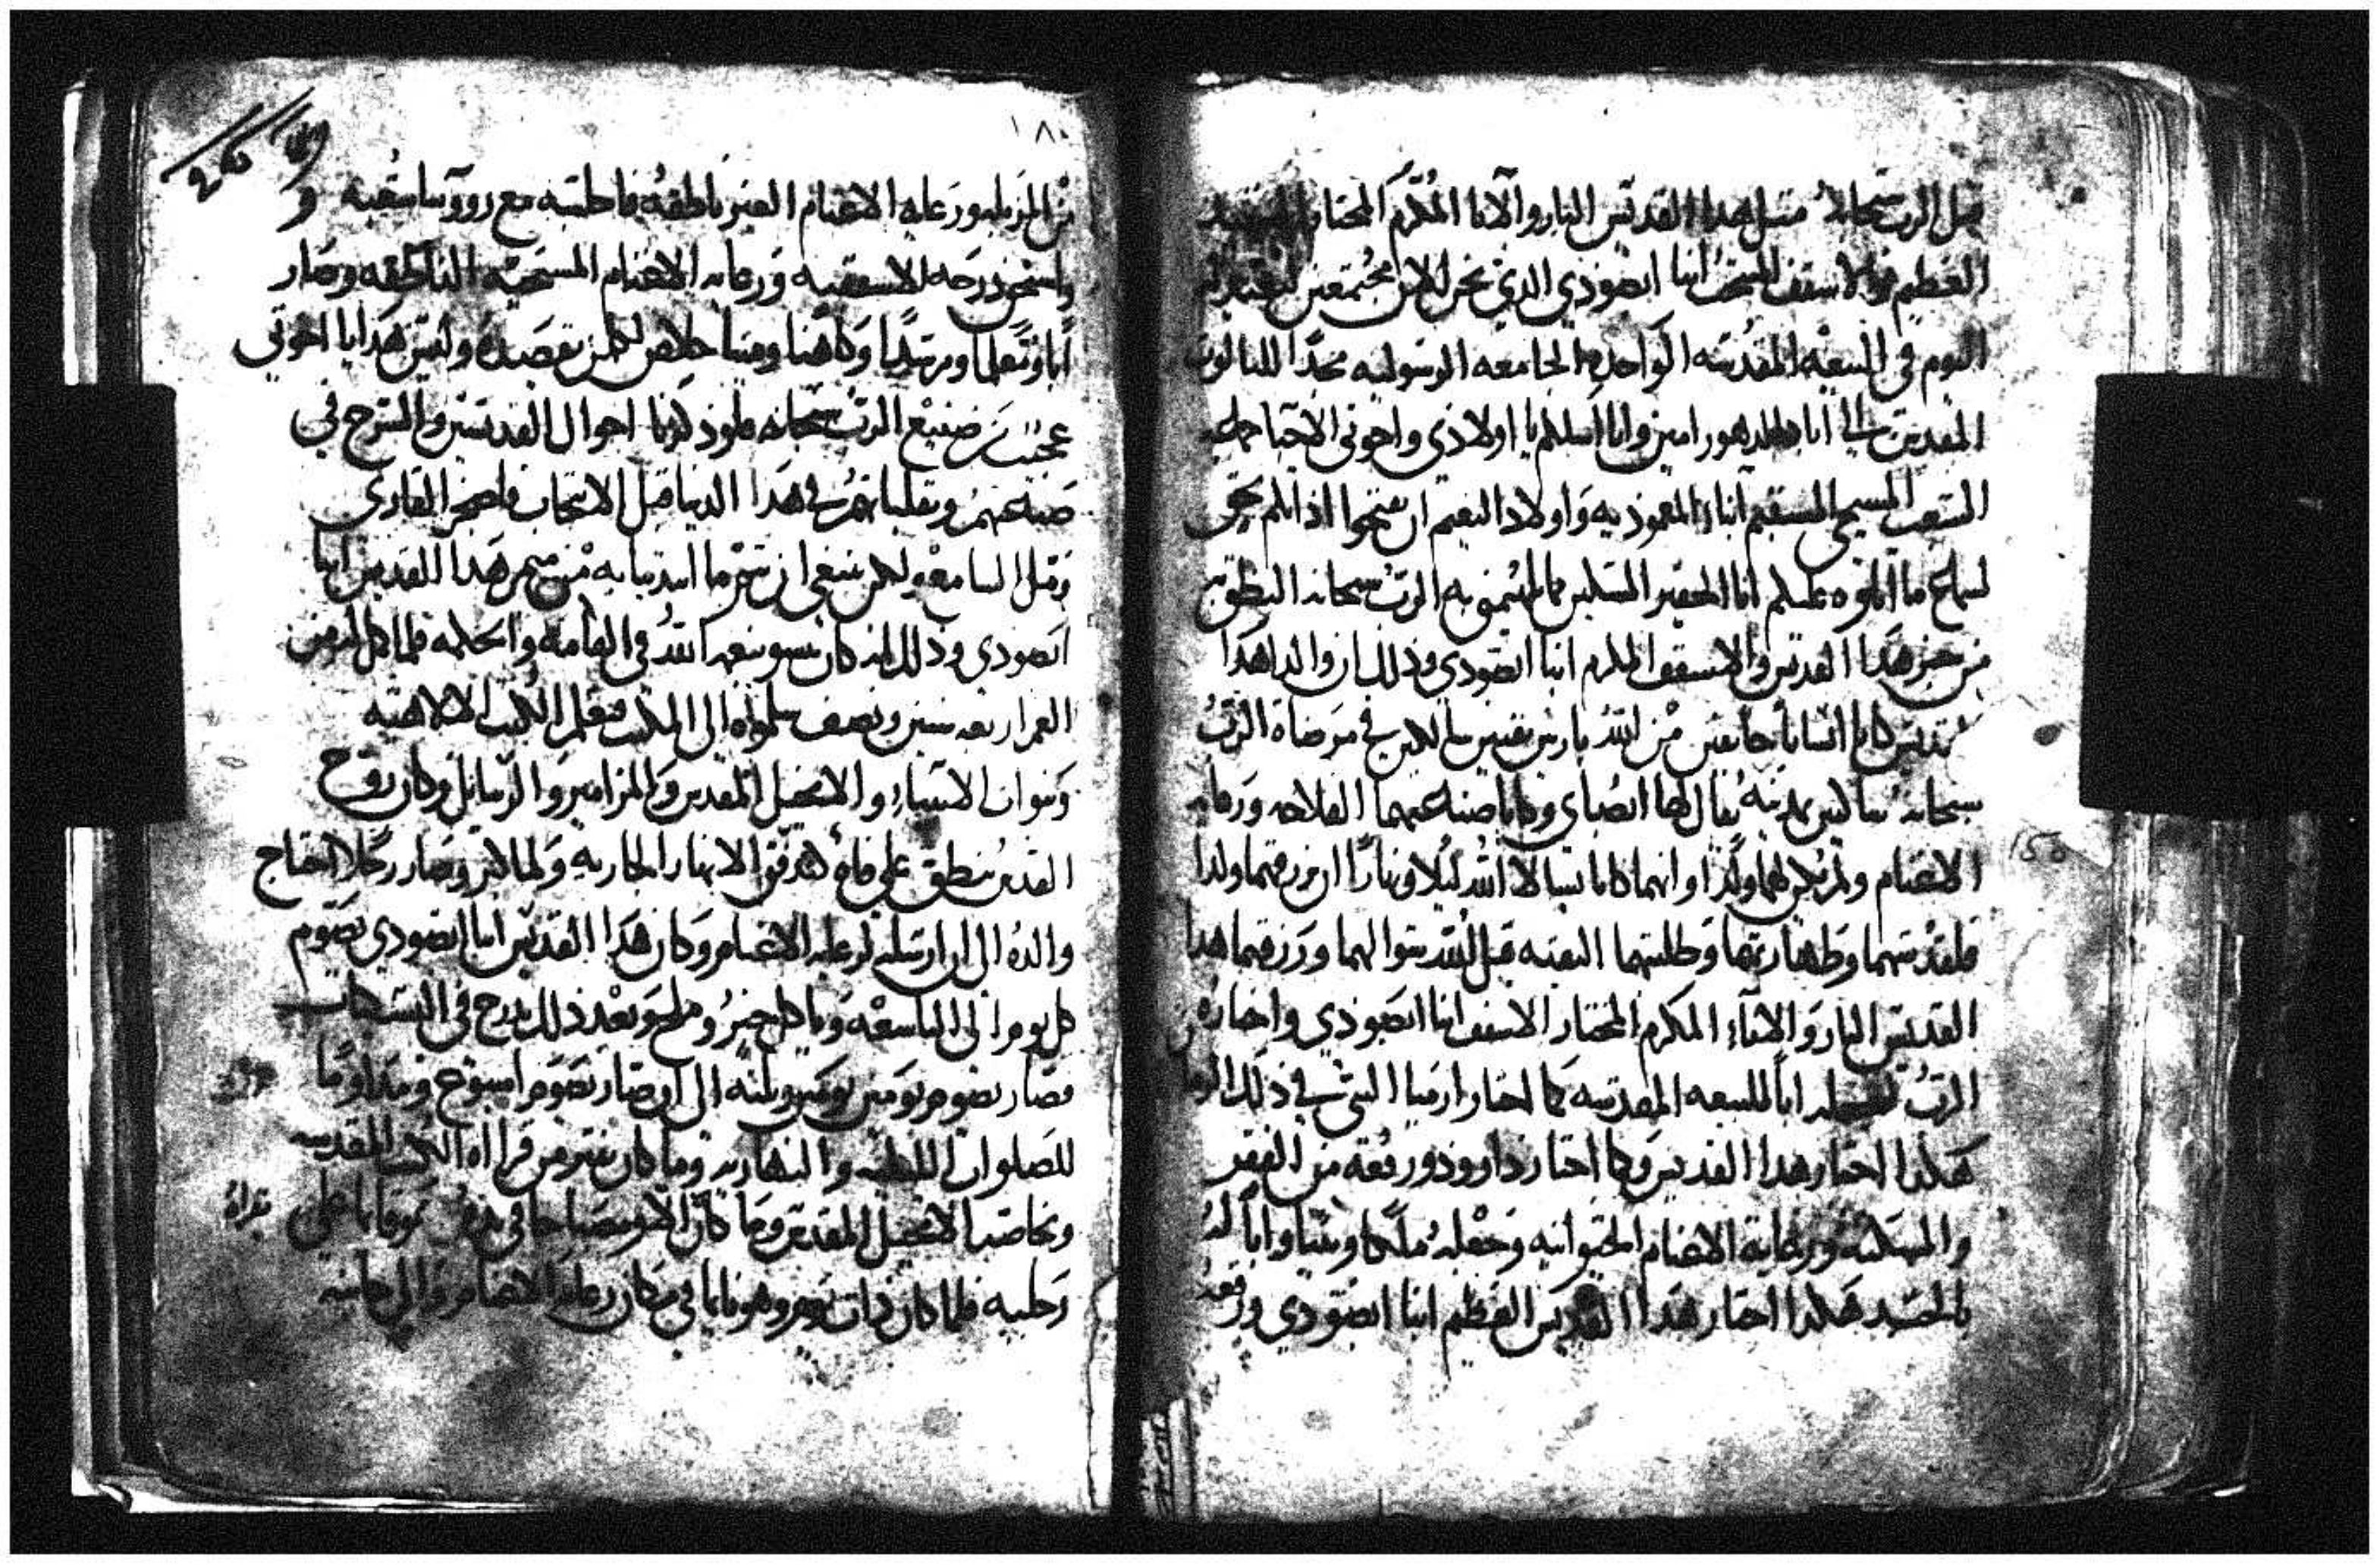 قبل الرب سبحانه مثل هدا القديس البار والابا المكرم المختار
العظيم في الاسقف المنتخب انبا ابصودي الدي نحن الان مجتمعين لنعيد له
اليوم في البيعه المقدسه الواحده الجامعه الرسوليه مجدًا للتالوت
المقدس الى اباد الدهور امين وانا اسالكم يا اولادي واخوتي الاحبا
الشعب المسيحي المستقيم ابناء المعموديه واولاد النعيم ان تفتحوا ادانكم
لسماع ما اتلوه عليكم انا الحقير المسكين الرب سبحانه
من خبر هدا القديس والاسقف المكرم انبا ابصودي ودلك ان والدا هدا
القديس كانا انسانا خايفين من الله بارين سالكين في مرضاة الرب
سبحانه ساكنين بمدينه يقال لها ابصاي وكانا صنعتهما الفلاحه ورعايه
الاغنام ولم يكن لهما ولدًا وانهما كانا يسالا الله ليلا ونهارًا ان يرزقهما ولدا
فلقدسهما وطهارتهما وطلبتهما النقيه قبل الله سوالهما ورزقهما هدا
القديس البار والاناء المكرم المختار الاسقف انبا ابصودي واختاره
الرب ابا للبيعه المقدسه كما اختار ارميا النبي في دلك الزمان
هكدا اختار هدا القديس وكما اختار داوود ورفعه من الفقر
والمسكنه ورعاية الاغنام الحيوانيه وجعله ملكًا ونبيًا وابًا له
بالجسد هكدا اختار هدا القديس العظيم انبا ابصودي ورفعه
١٨٠
من رعاية الاغنام الغير ناطقه فاجلسه مع روسا شعبه و
واستحق درجه الاسقفيه ورعايه الاغنام المسيحيه الناطقه وصار
ابًا ومعلما ومرشدًا وكاهنا ومينا خلاص لكل من يقصده وليس هدا يا اخوتي
عجيب من صنيع الرب سبحانه فلو دكرنا احوال القديسين والشرح في
صنعتهم وتقلباتهم في هدا الدنيا قبل الانتخاب فاضجر القارى
ومل السامع ولكن ينبغى ان نتم ما ابتدينا به من خبر هدا القديس انبا
ابصودي ودلك انه كان ينمو بنعمه الله في القامه والحكمه فلما كمل له من
العمر اربعه سنين ونصف سلموه الى المكتب فتعلم الكتب الالاهيه
ونبوات الانبياء والانجيل المقدس والمزامير والرسايل وكان روح
القدس ينطق على فاه كتدفق الانهار الجاريه ولما كبر وصار رجلا احتاج
والده الى ان ارسله لرعايه الاغنام وكان هدا القديس انبا ابصودي يصوم
كل يوم الى التاسعه وياكل خبز وملح وبعد دلك تدرج في النسكيات
فصار يصوم يومين يومين وتلته الى ان صار يصوم اسبوع ومداومًا
للصلوات الليليه والنهاريه وما كان يفتر من قراءة الكتب المقدسه
وبخاصه الانجيل المقدس وما كان الا ومصباحا في يده وقايما على
رجليه فلما كان دات يوم وهو نايما في مكان رعاية الاغنام والى جانبه